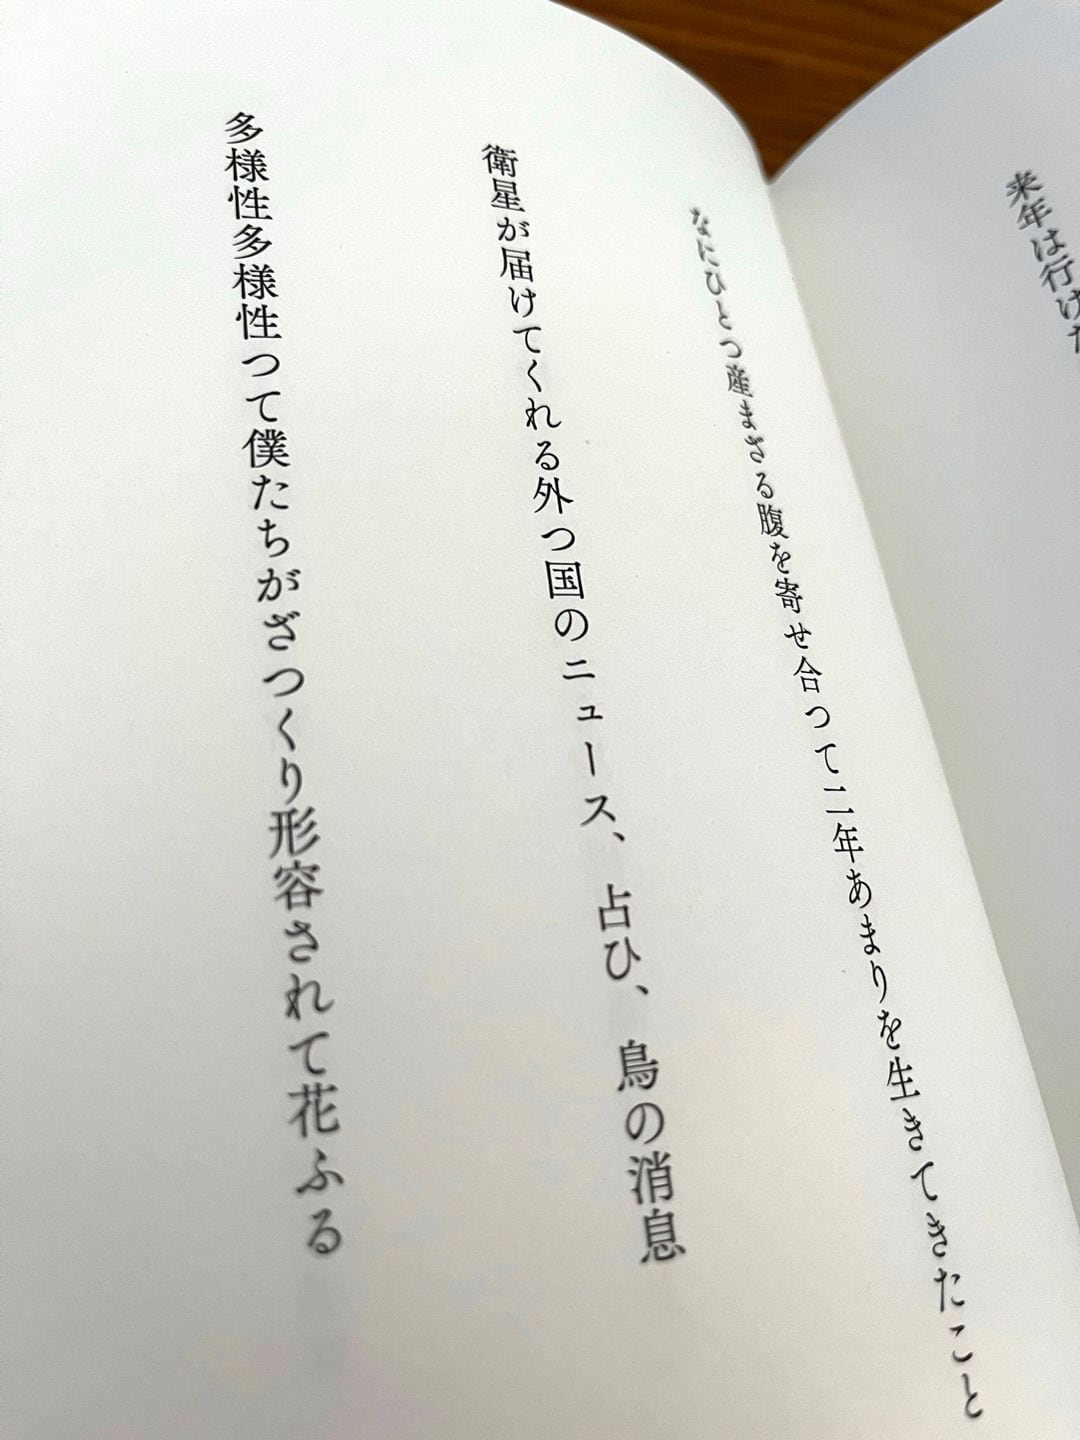 来年は行けた
なにひとつ産まざる腹を寄せ合つて二年あまりを生きてきたこと
衛星が届けてくれる外つ国のニュース、占ひ、鳥の消息
多様性多様性つて僕たちがざつくり形容されて花ふる